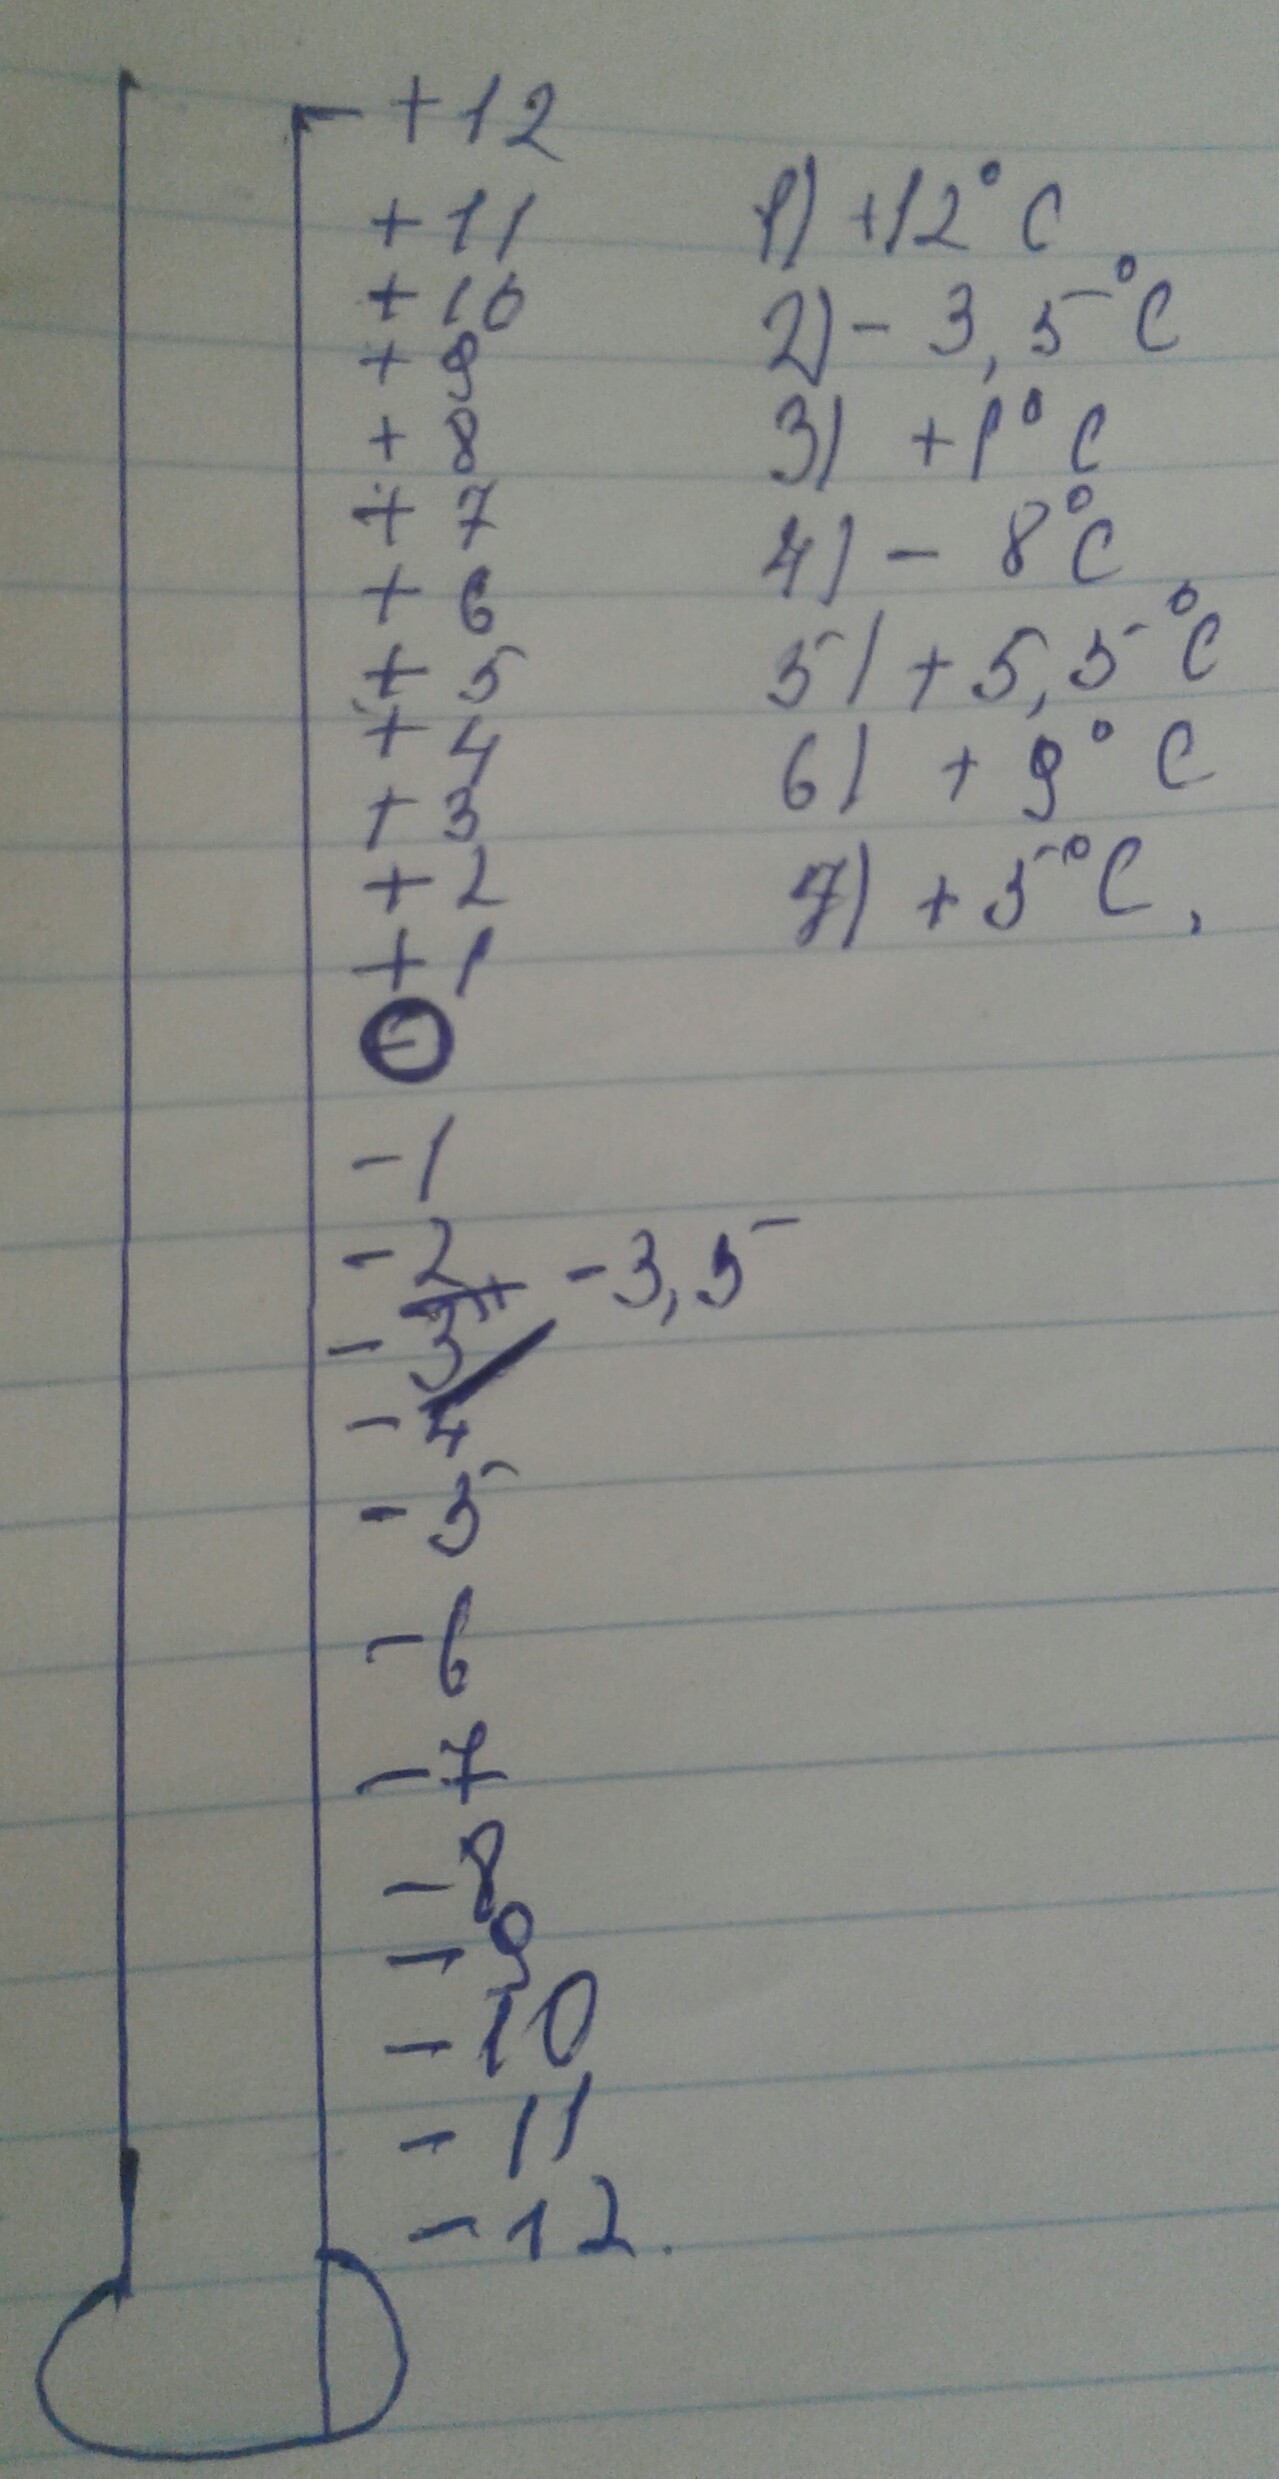 +12
+11
+10
+9
+8
+7
+6
+5
+4
+3
+2
+1
0
-1
-2
-3
-3,5
-4
-5
-6
-7
-8
-9
-10
-11
-12.
1) +12°C
2) - 3,5°C
3) +1°C
4) - 8°C
5) +5,5°C
6) + 9°C
7) +5°C,